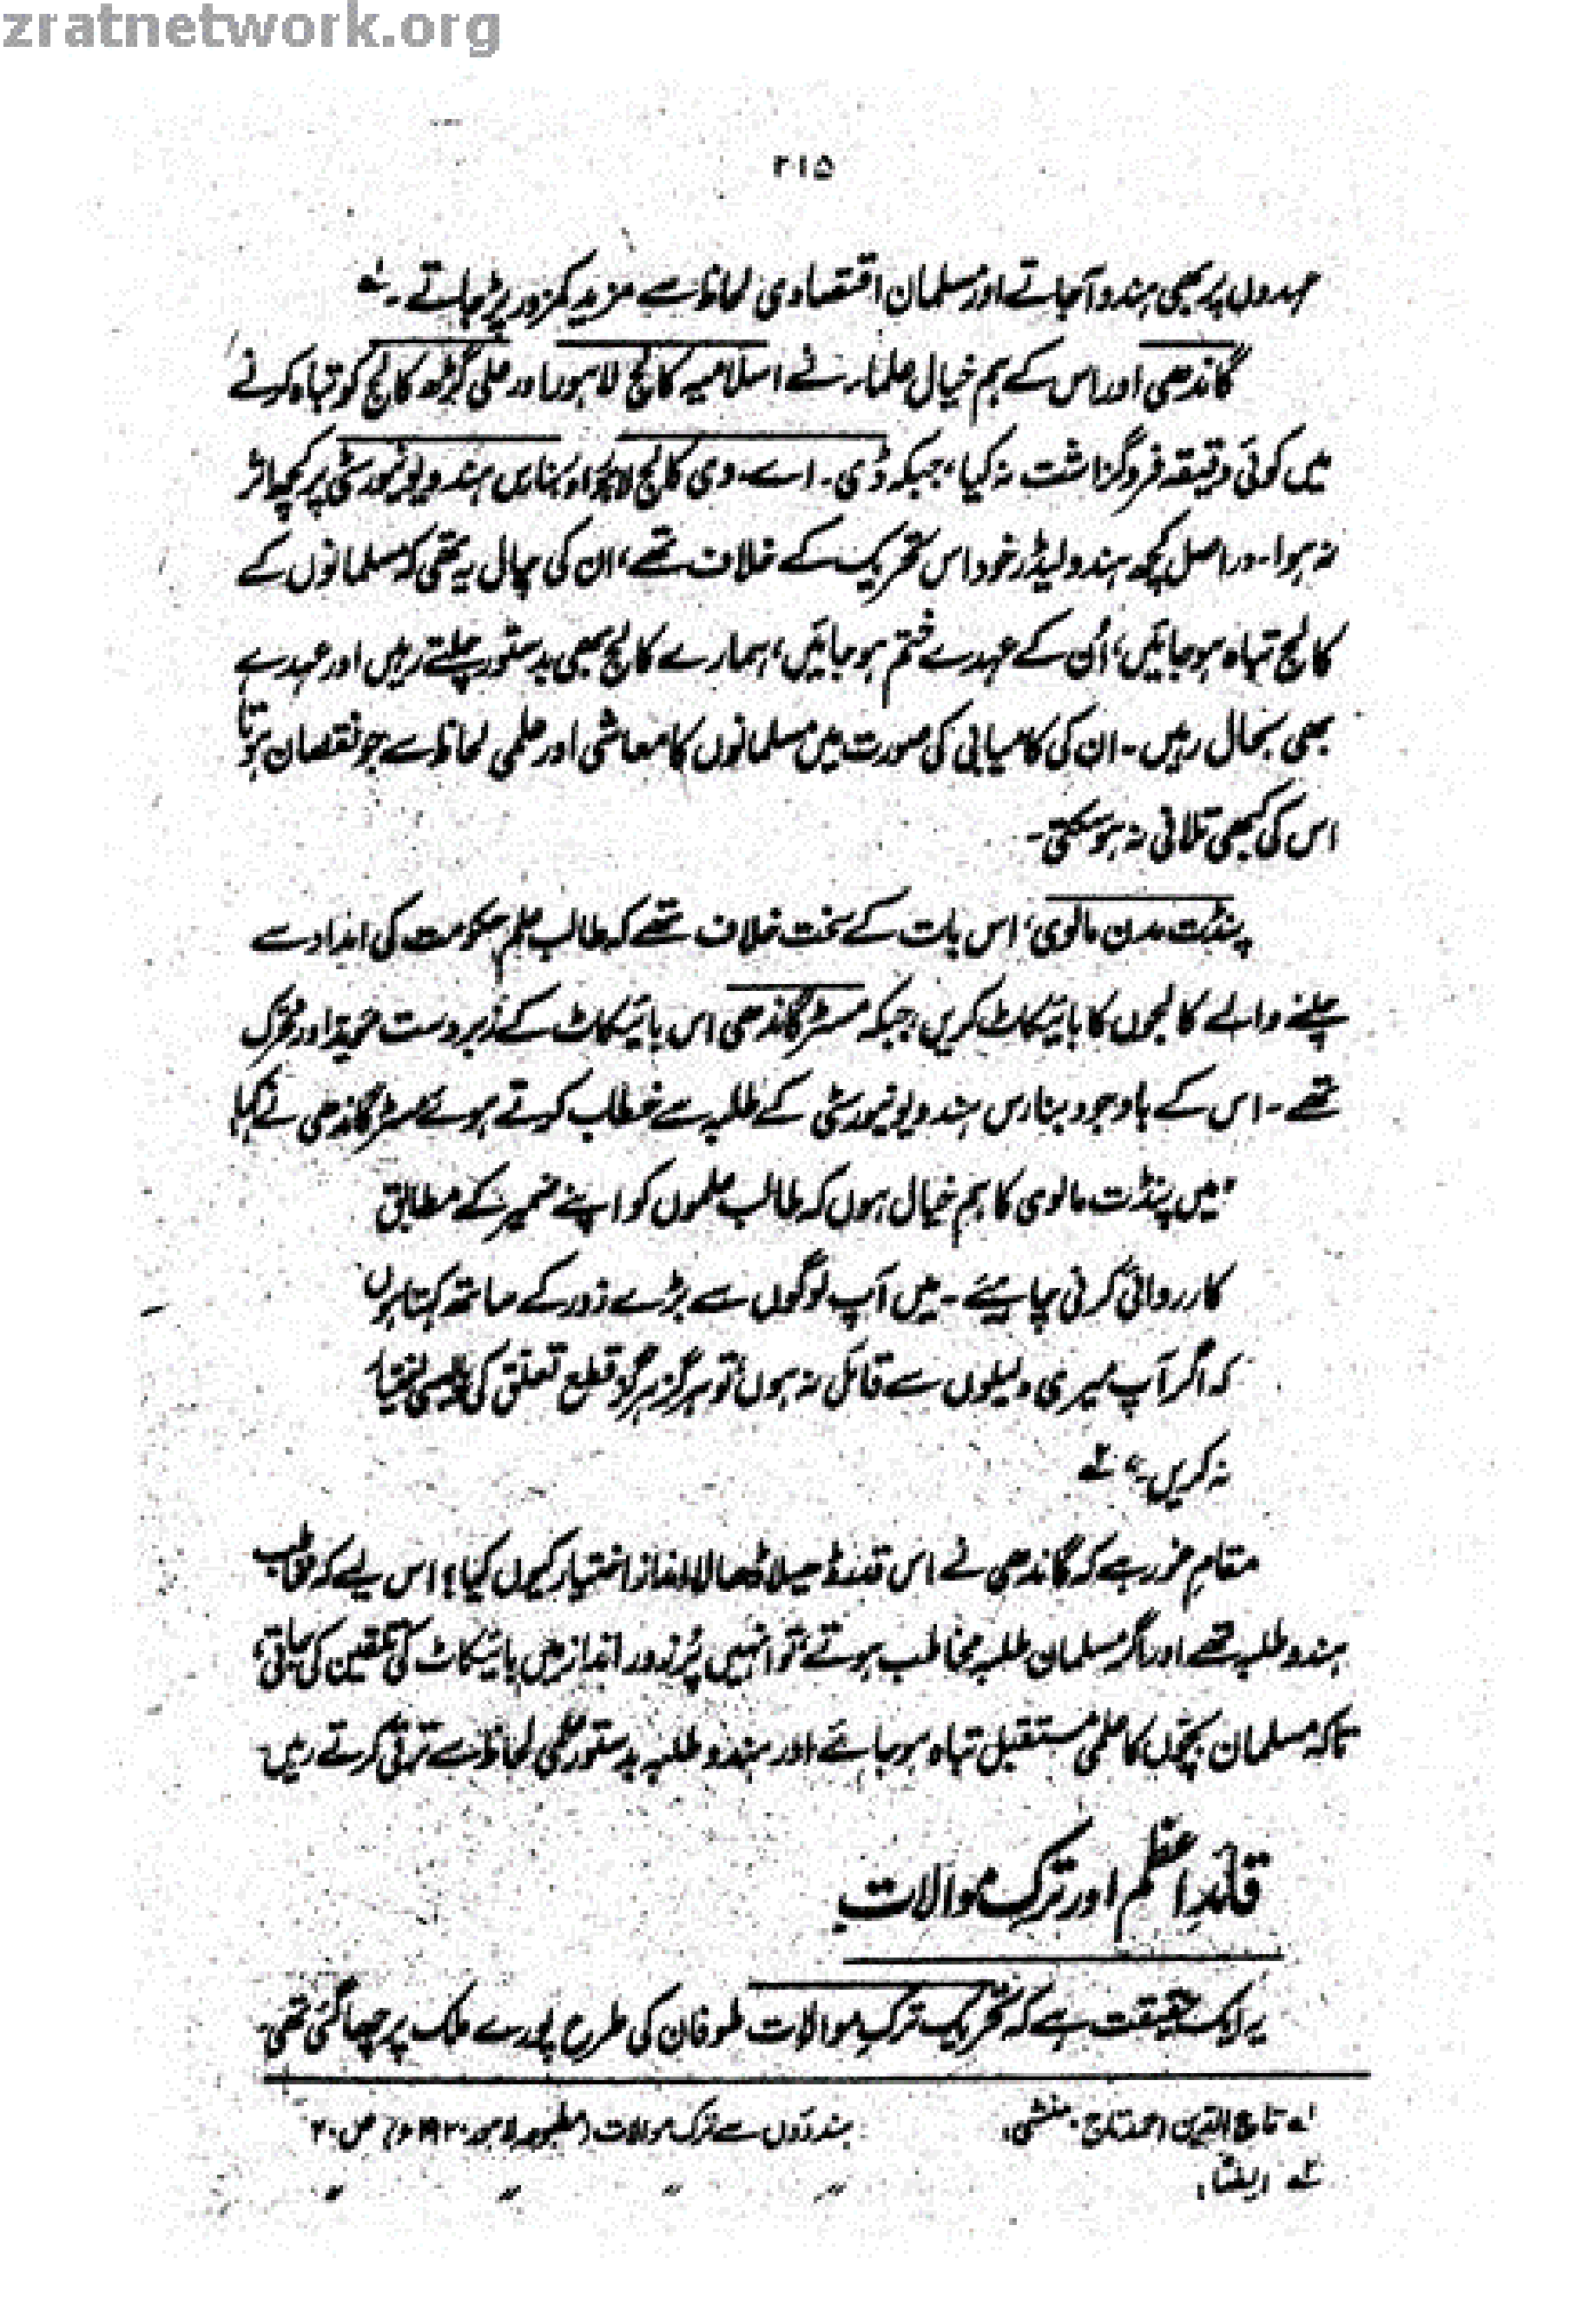 zratnetwork.org
۲۱۵
عہدوں پر بھی ہندو آجاتے اور مسلمان اقتصادی لحاظ سے مزید کمزور پڑ جاتے ۔ لے
گاندھی اور اس کے ہم خیال علماء نے اسلامیہ کالج لاہور اور علی گڑھ کالج کو تباہ کرنے
میں کوئی دقیقہ فروگزاشت نہ کیا، جبکہ ڈی۔ اے۔ وی کالج لاہور اور بنارس ہندو یونیورسٹی پر کچھ اثر
نہ ہوا۔ دراصل کچھ ہندو لیڈر خود اس تحریک کے خلاف تھے، ان کی چال یہ تھی کہ مسلمانوں کے
کالج تباہ ہوجائیں، اُن کے عہدے ختم ہوجائیں، ہمارے کالج بھی بدستور چلتے رہیں اور عہدے
بھی بحال رہیں۔ ان کی کامیابی کی صورت میں مسلمانوں کا معاشی اور علمی لحاظ سے جو نقصان ہوتا
اس کی کبھی تلافی نہ ہوسکتی۔
پنڈت مدن مالوی، اس بات کے سخت خلاف تھے کہ طالب علم حکومت کی امداد سے
چلنے والے کالجوں کا بائیکاٹ کریں، جبکہ مسٹر گاندھی اس بائیکاٹ کے زبردست مؤید اور محرک
تھے۔ اس کے باوجود بنارس ہندو یونیورسٹی کے طلبہ سے خطاب کرتے ہوئے مسٹر گاندھی نے کہا
"میں پنڈت مالوی کا ہم خیال ہوں کہ طالب علموں کو اپنے ضمیر کے مطابق
کارروائی کرنی چاہیئے۔ میں آپ لوگوں سے بڑے زور کے ساتھ کہتا ہوں
کہ اگر آپ میری دلیلوں سے قائل نہ ہوں تو ہرگز ہرگز قطع تعلق کی پالیسی اختیار
نہ کریں۔" ۲ے
مقامِ غور ہے کہ گاندھی نے اس قدر ڈھیلا ڈھالا انداز اختیار کیوں کیا؟ اس لیے کہ مخاطب
ہندو طلبہ تھے اور اگر مسلمان طلبہ مخاطب ہوتے، تو انہیں پُرزور انداز میں بائیکاٹ کی تلقین کی جاتی،
تاکہ مسلمان بچّوں کا علمی مستقبل تباہ ہوجائے اور ہندو طلبہ بدستور علمی لحاظ سے ترقی کرتے رہیں۔
قائدِ اعظم اور ترکِ موالات
یہ ایک حقیقت ہے کہ تحریک ترکِ موالات طوفان کی طرح پورے ملک پر چھا گئی تھی۔
۱ے تاج الدین احمد تاج، منشی: ہندوؤں سے ترک موالات (مطبوعہ لاہور ۱۹۲۰ء) ص ۲۰
۲ے ایضاً: ״ ״ ״ ״